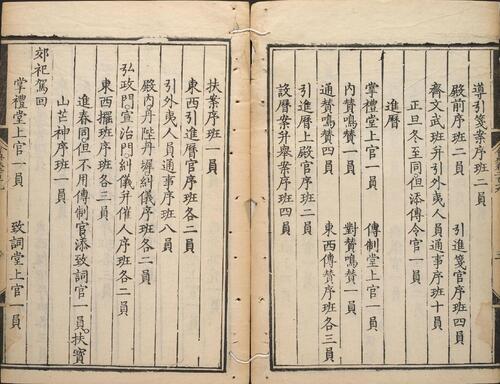 導引箋案序班二員
殿前序班二員　引進箋官序班四員
齊文武班并引外夷人員通事序班十員
正旦冬至同但添傳令官一員
進曆
掌禮堂上官一員　傳制堂上官一員
內贊鳴贊一員　對贊鳴贊一員
通贊鳴贊四員　東西傳贊序班各三員
引進曆上殿官序班二員
設曆案并舉案序班四員
扶案序班一員
東西引進曆官序班各二員
引外夷人員通事序班八員
殿內丹陛丹墀糾儀序班各二員
弘政門宣治門糾儀并催人序班各二員
東西擺班序班各三員
進春同但不用傳制官添致詞官一員扶寶
山芒神序班一員
郊祀駕回
掌禮堂上官一員　致詞堂上官一員